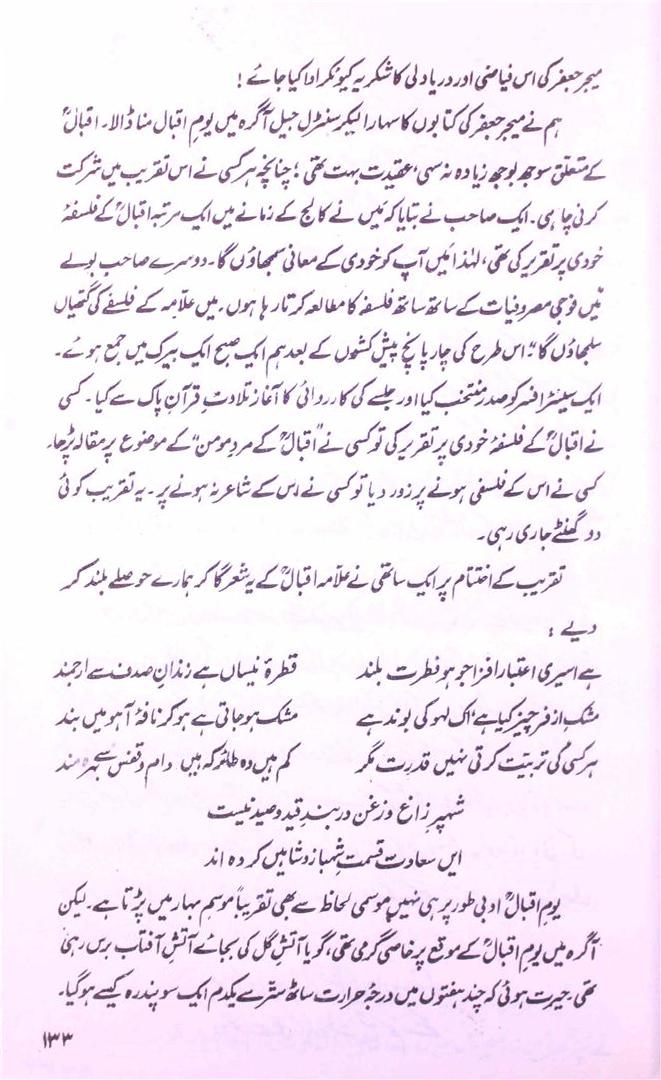 میجر جعفر کی اس فیاضی اور دریا دلی کا شکریہ کیونکر ادا کیا جائے!
ہم نے میجر جعفر کی کتابوں کا سہارا لیکر سنٹرل جیل آگرہ میں یومِ اقبال منا ڈالا۔ اقبالؒ
کے متعلق سوجھ بوجھ زیادہ نہ سہی، عقیدت بہت تھی؛ چنانچہ ہر کسی نے اس تقریب میں شرکت
کرنی چاہی۔ ایک صاحب نے بتایا کہ مَیں نے کالج کے زمانے میں ایک مرتبہ اقبالؒ کے فلسفۂ
خودی پر تقریر کی تھی، لہٰذا مَیں آپ کو خودی کے معانی سمجھاؤں گا۔ دوسرے صاحب بولے
مَیں فوجی مصروفیات کے ساتھ ساتھ فلسفہ کا مطالعہ کرتا رہا ہوں۔ میں علّامہ کے فلسفے کی گتھیاں
سلجھاؤں گا" اس طرح کی چار پانچ پیش کشوں کے بعد ہم ایک صبح ایک بیرک میں جمع ہوئے۔
ایک سینئر افسر کو صدر منتخب کیا اور جلسے کی کارروائی کا آغاز تلاوتِ قرآنِ پاک سے کیا۔ کسی
نے اقبالؒ کے فلسفۂ خودی پر تقریر کی تو کسی نے "اقبالؒ کے مردِ مومن" کے موضوع پر مقالہ پڑھا۔
کسی نے اس کے فلسفی ہونے پر زور دیا تو کسی نے اس کے شاعر نہ ہونے پر۔ یہ تقریب کوئی
دو گھنٹے جاری رہی۔
تقریب کے اختتام پر ایک ساتھی نے علّامہ اقبالؒ کے یہ شعر گا کر ہمارے حوصلے بلند کر
دیے:
ہے اسیری اعتبار افزا جو ہو فطرت بلند قطرۂ نیساں ہے زندانِ صدف سے ارجمند
مشکِ از فر چیز کیا ہے، اک لہو کی بوند ہے مشک ہو جاتی ہے ہو کر نافۂ آہو میں بند
ہر کسی کی تربیت کرتی نہیں قدرت مگر کم ہیں وہ طائر کہ ہیں دام و قفس سے بہرہ مند
شہپرِ زاغ و زغن در بندِ قید و صید نیست
ایں سعادت قسمتِ شہباز و شاہیں کردہ اند
یومِ اقبالؒ ادبی طور پر ہی نہیں موسمی لحاظ سے بھی تقریباً موسمِ بہار میں پڑتا ہے۔ لیکن
آگرہ میں یومِ اقبالؒ کے موقع پر خاصی گرمی تھی، گویا آتشِ گل کی بجائے آتشِ آفتاب برس رہی
تھی۔ حیرت ہوئی کہ چند ہفتوں میں درجۂ حرارت ساٹھ ستّر سے یکدم ایک سو پندرہ کیسے ہو گیا۔
۱۳۳